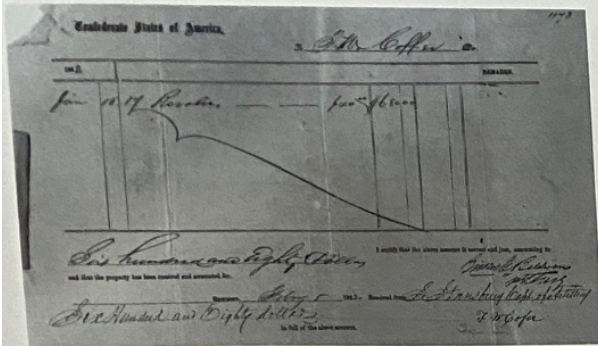 1173
Confederate States of America,
To T. W. Coffer Dr.
186 REMARKS.
Jan 10 17 Revolvers — —
I certify that the above account is correct and just, amounting to
Six hundred and Eighty Dollars
and that the property has been received and accounted for.
Feby 5 1863. Received from Capt of Artillery
Six Hundred and Eighty dollars,
T W Cofer
in full of the above account.